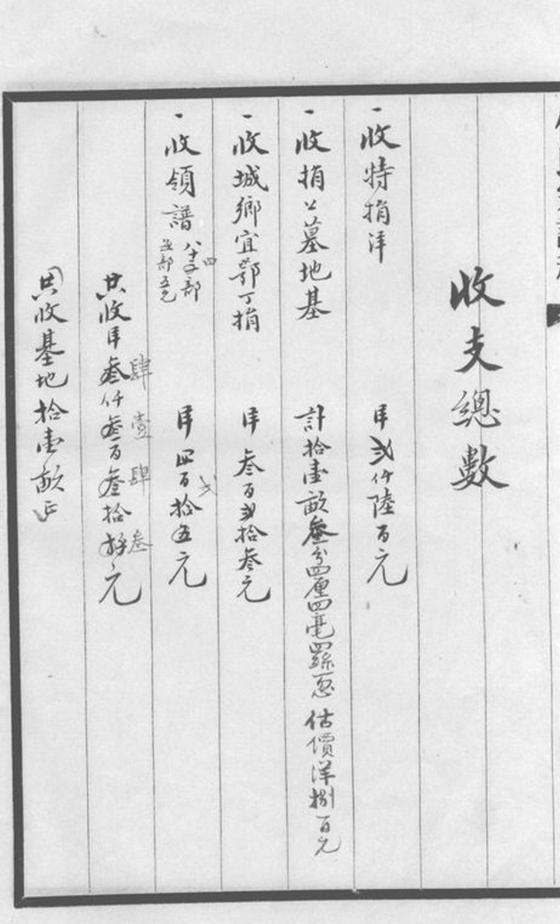 收支總數
一收特捐洋 洋弍仟陸百元
一收捐公墓地基 計拾壹畝叁分四厘四毫四絲 估價洋捌百元
一收城鄉宜鄂丁捐 洋叁百弍拾叁元
一收領譜 洋四百拾五元
共收洋叁仟叁百叁拾元
肆壹肆叁
共收基地拾壹畝正